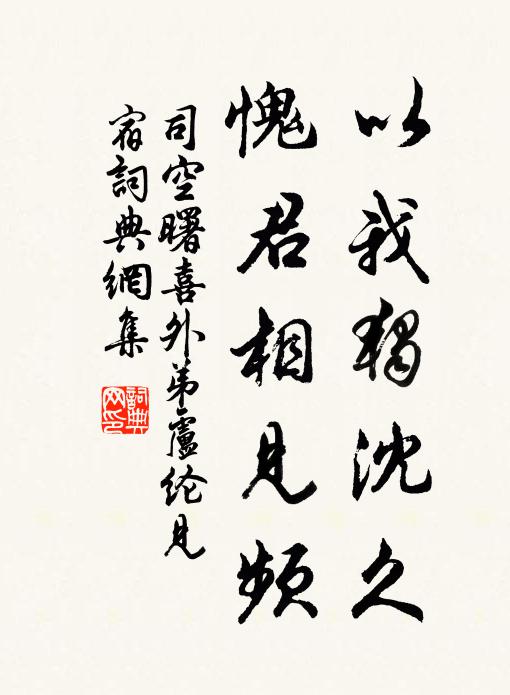 以我獨沈久
愧君相見頻
司空曙喜外弟盧纶見
宿詞典網集
詞典
网印